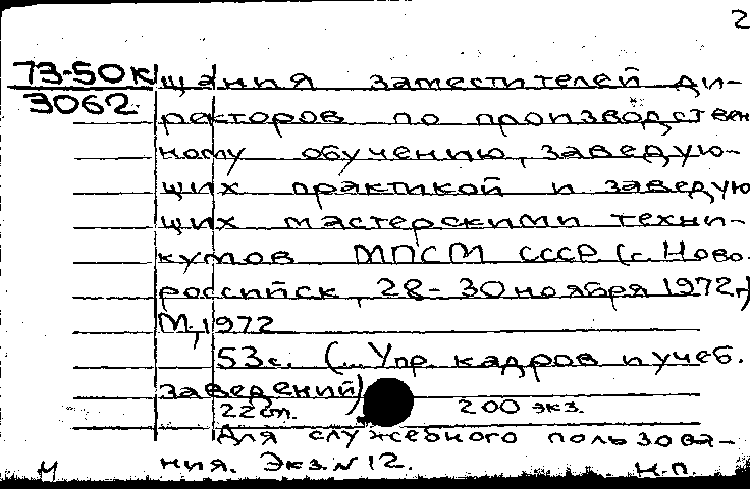 2
73-50к щания заместителей ди-
3062 ректоров по производствен
ному обучению, заведую-
щих практикой и заведую
щих мастерскими техни-
кумов МПСМ СССР (г. Ново.
российск, 28-30 ноября 1972г)
М., 1972
53с. (... Упр. кадров и учеб.
заведений)
22см. 200 экз.
Для служебного пользова-
ния. Экз. N 12.
ч н.п.